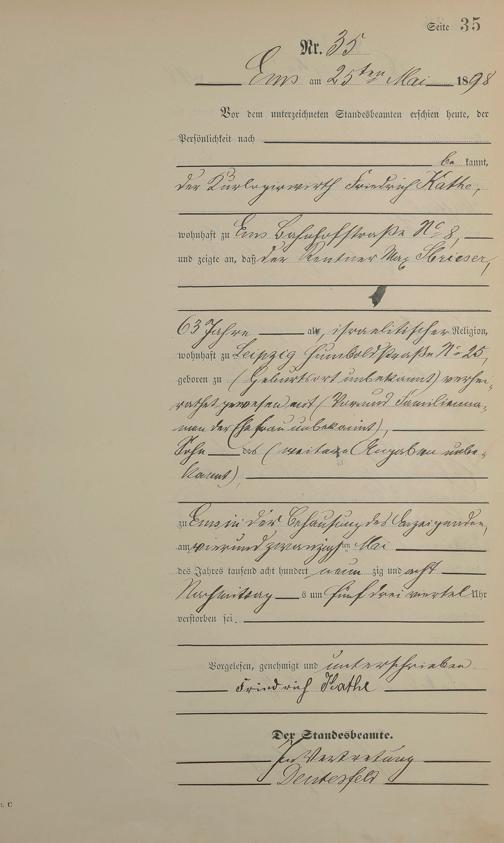 Seite 35
Nr. 35
Ems am 25ten Mai 1898
Vor dem unterzeichneten Standesbeamten erschien heute, der
Persönlichkeit nach
be kannt,
der Kurlogirwirth Friedrich Kathe,
wohnhaft zu Ems Bahnhofstraße No 8,
und zeigte an, daß der Rentner Max
63 Jahre alt, israelitischer Religion,
wohnhaft zu Leipzig Humboldstraße No 25,
geboren zu (Geburtsort unbekannt) verhei-
rathet gewesen mit (Vor und Familienna-
men der Ehefrau unbekannt),
Sohn des (weitere Angaben unbe-
kannt),
zu Ems in der Behausung des Anzeigenden,
am vierundzwanzigsten Mai
des Jahres tausend acht hundert neun zig und acht
Nachmittag s um fünf dreiviertel Uhr
verstorben sei.
Vorgelesen, genehmigt und unterschrieben
Friedrich Kathe
Der Standesbeamte.
In Vertretung